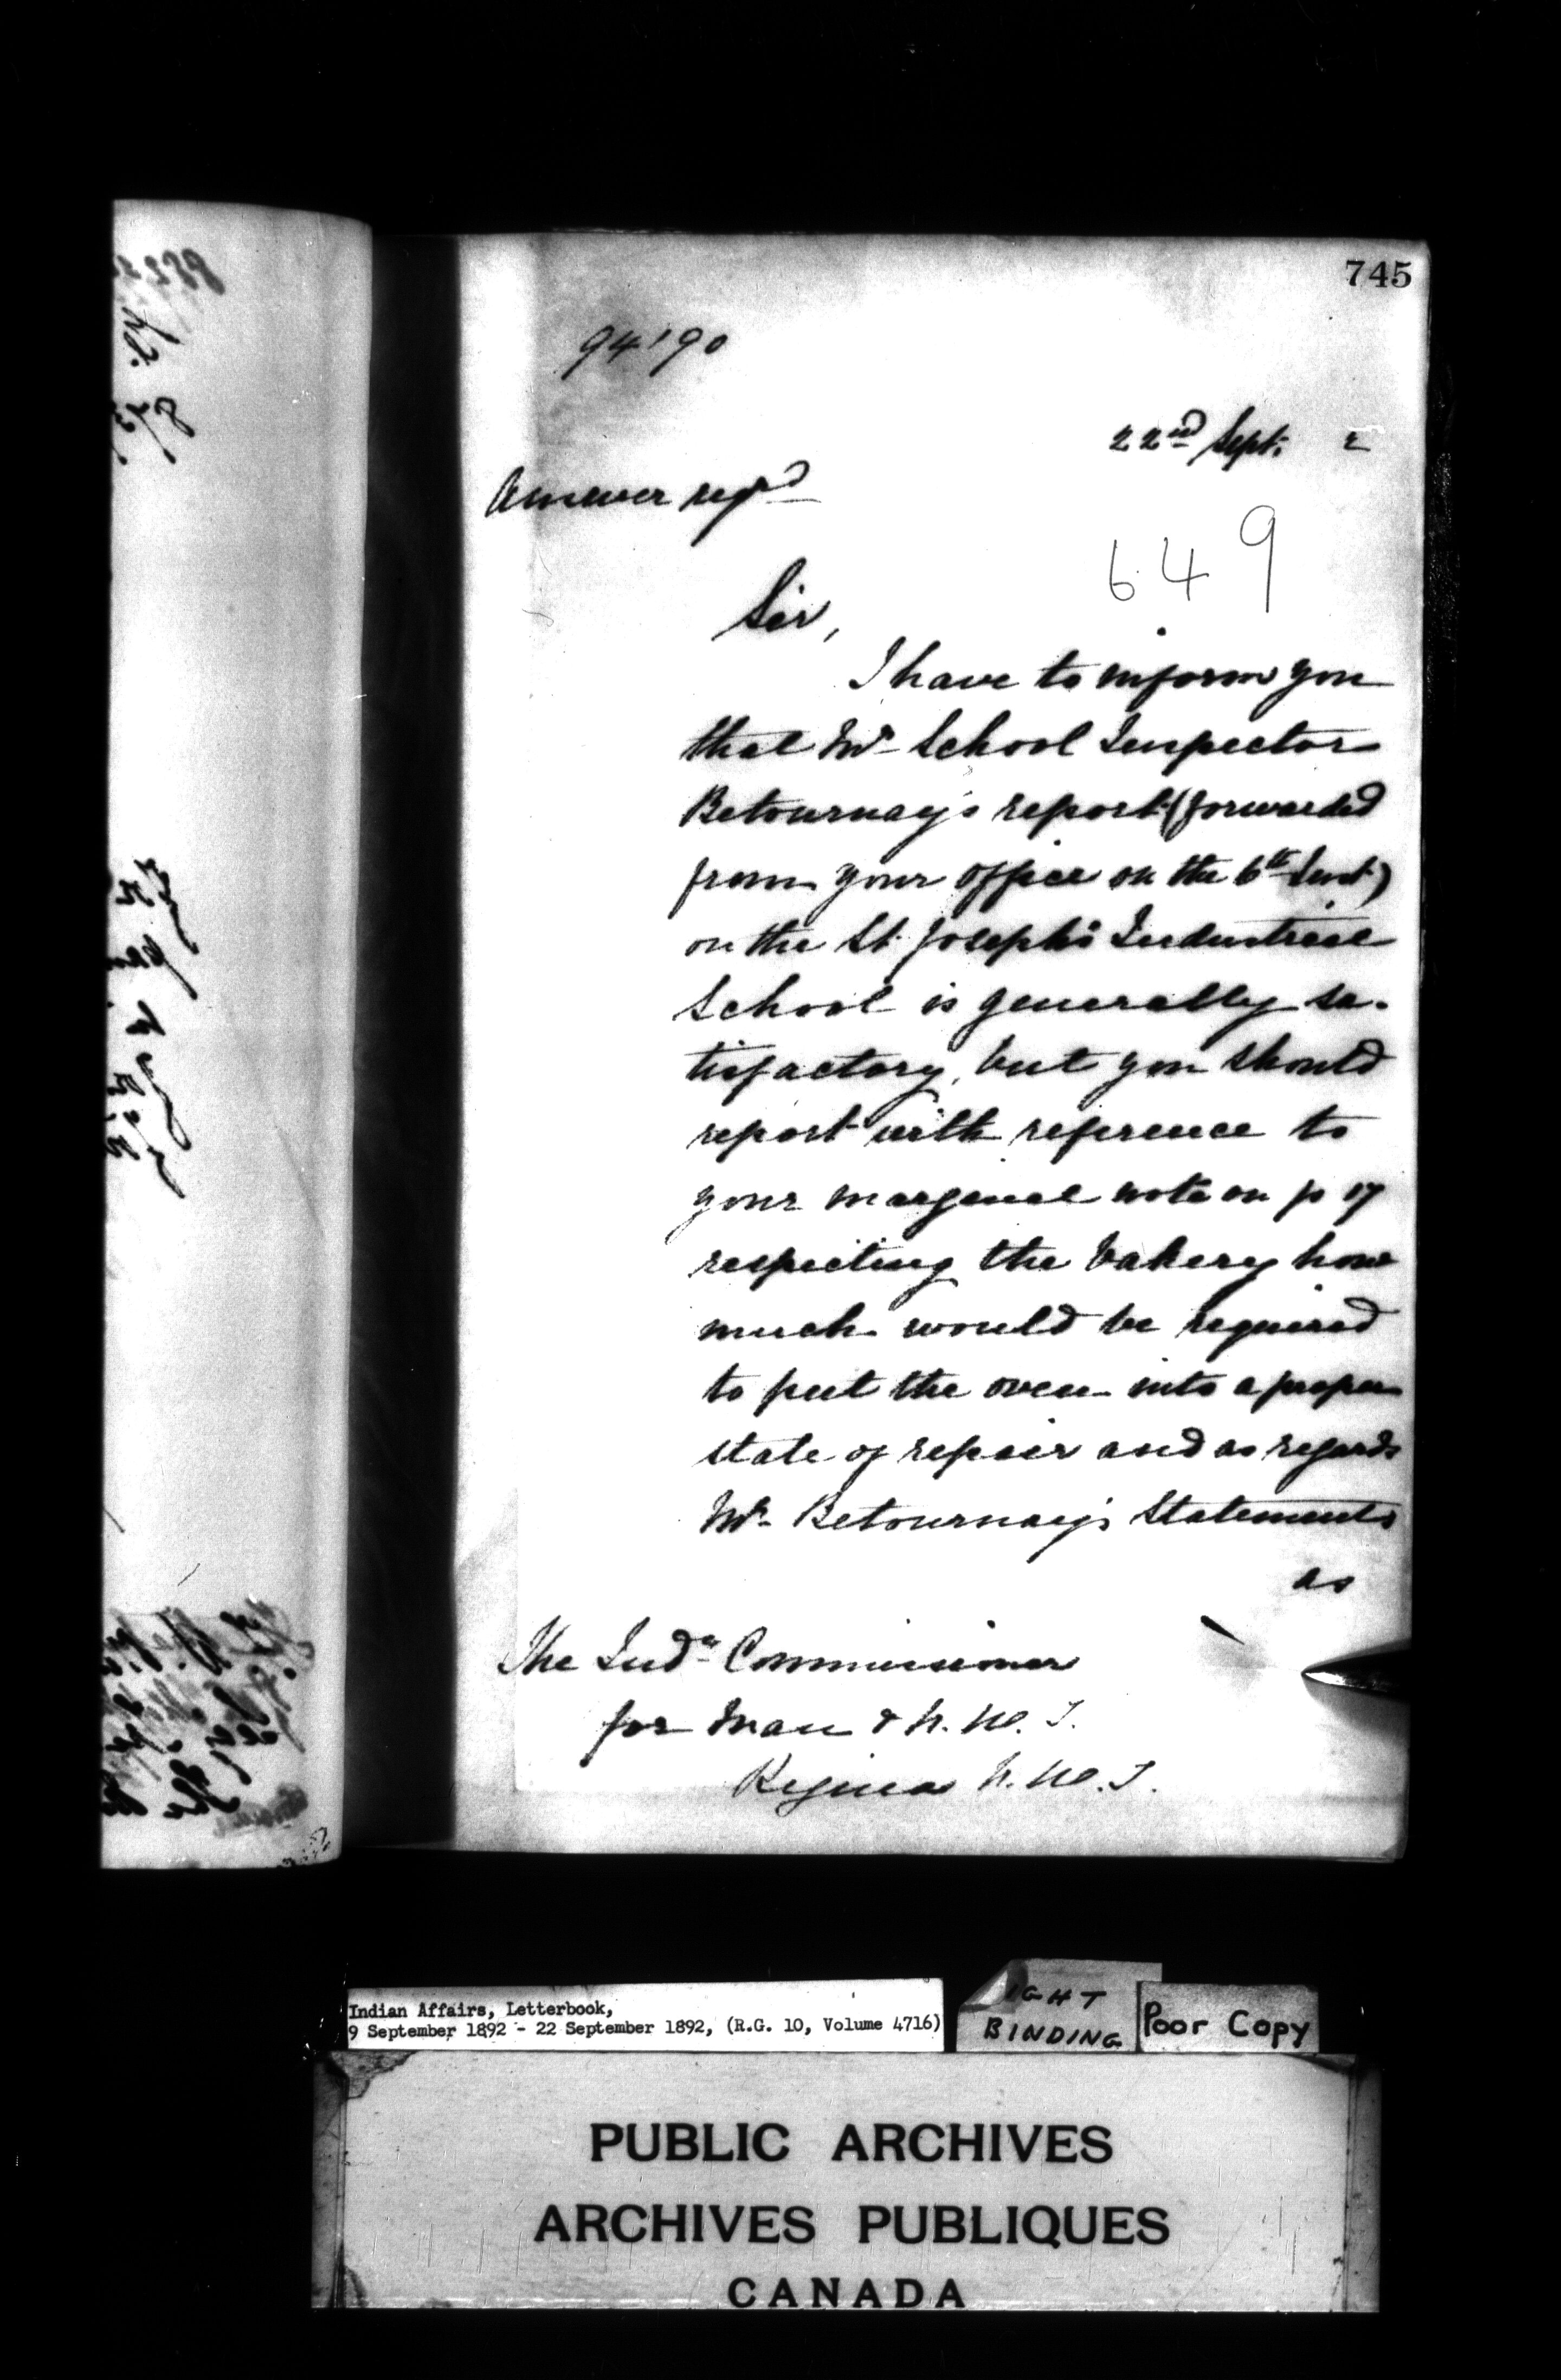 745
94190
22nd Sept. 2
Answer reqd
649
Sir,
I have to inform you
that Mr School Inspector
Betournay's report (forwarded
from your office on the 6th Inst)
on the St. Joseph's Industrial
School is generally sa-
tisfactory, but you should
report with reference to
your marginal note on p 17
respecting the bakery how
much would be required
to put the oven into a proper
state of repair and as regards
Mr Betournay's Statements
as
The Indn Commissioner
for Man & N.W.T.
Regina N.W.T.
Indian Affairs, Letterbook,
9 September 1892 - 22 September 1892, (R.G. 10, Volume 4716)
IGHT
BINDING
Poor Copy
PUBLIC ARCHIVES
ARCHIVES PUBLIQUES
CANADA